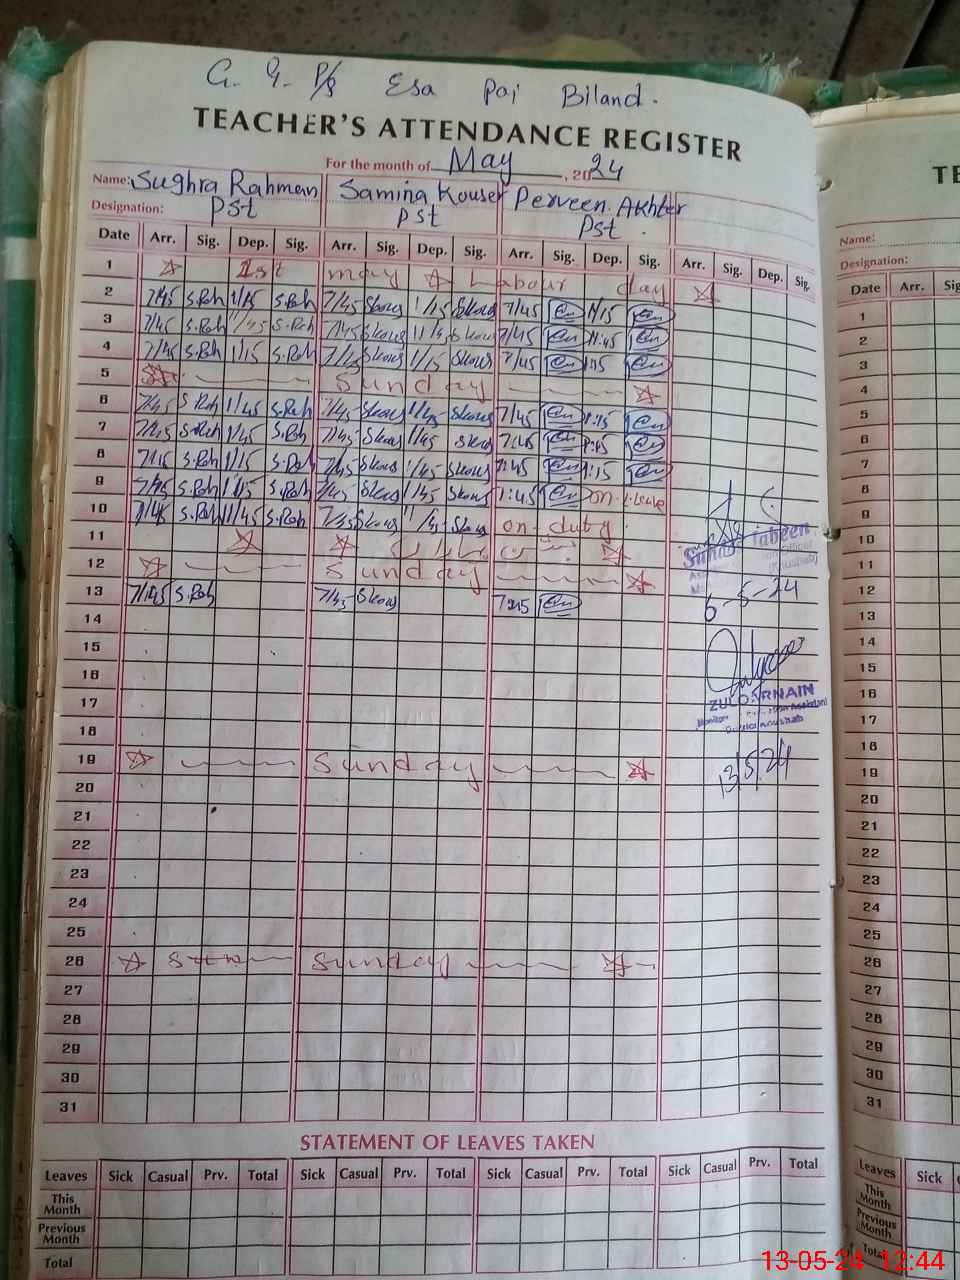 G. G. P/S Esa Poi Biland.
TEACHER'S ATTENDANCE REGISTER
For the month of May, 2024
Name: Sughra Rahman Samina Kouser Perveen Akhter
Designation: Pst Pst Pst.
Date Arr. Sig. Dep. Sig. Arr. Sig. Dep. Sig. Arr. Sig. Dep. Sig. Arr. Sig. Dep. Sig.
1 1st may Labour day
2 7/45 S.Rah 1/15 S.Rah 7/45 Skous 1/15 Skous 7/45 1/15
3 7/45 S.Rah 11/45 S.Rah 7/45 Skous 11/45 Skous 7/45 11:45
4 7/45 S.Rah 1/15 S.Rah 7/45 Skous 1/15 Skous 7/45 1:15
5 Sunday
6 7/45 S.Rah 1/45 S.Rah 7/45 Skous 1/45 Skous 7/45
7 7/45 S.Rah 1/45 S.Rah 7/45 Skous 1/45 Skous 7:45
8 S.Rah 1/15 S.Rah 7/45 Skous 1/45 Skous 7:45 1:15
9 7/45 S.Rah 1/15 S.Rah 7/45 Skous 1/45 Skous on leave
10 7/45 S.Rah 1/45 S.Rah 7/45 Skous 11/45 Skous on duty
11
12 Sunday
13 7/45 S.Rah 7/45 Skous 7:45
14
15
16
17
18
19 Sunday
20
21
22
23
24
25
26 Sunday
27
28
29
30
31
Tabeen
6-5-24
ZULQARNAIN
13/5/24
STATEMENT OF LEAVES TAKEN
Leaves Sick Casual Prv. Total Sick Casual Prv. Total Sick Casual Prv. Total Sick Casual Prv. Total
This Month
Previous Month
Total
TE
Name:
Designation:
Date Arr. Sig
1
2
3
4
5
6
7
8
9
10
11
12
13
14
15
16
17
18
19
20
21
22
23
24
25
26
27
28
29
30
31
Leaves Sick
This Month
Previous Month
Total
13-05-24 12:44